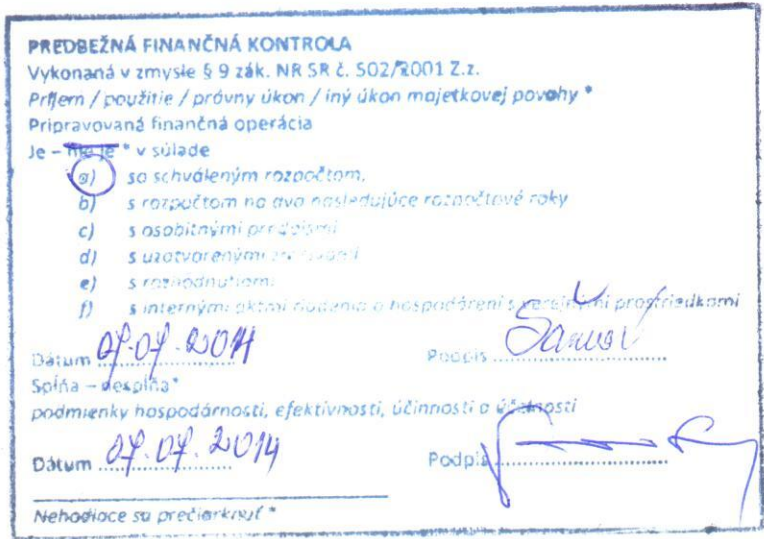 PREDBEŽNÁ FINANČNÁ KONTROLA
Vykonaná v zmysle § 9 zák. NR SR č. 502/2001 Z.z.
Príjem / použitie / právny úkon / iný úkon majetkovej povahy *
Pripravovaná finančná operácia
Je – nie je * v súlade
a) so schváleným rozpočtom,
b) s rozpočtom na dva nasledujúce rozpočtové roky
c) s osobitnými predpismi
d) s uzatvorenými zmluvami
e) s rozhodnutiami
f) s internými aktmi riadenia o hospodárení s verejnými prostriedkami
Dátum 07.07.2014 Podpis
Spĺňa – nespĺňa*
podmienky hospodárnosti, efektívnosti, účinnosti a účelnosti
Dátum 07.07.2014 Podpis
Nehodiace sa prečiarknuť *